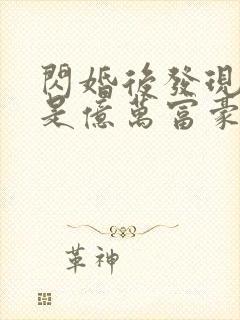 閃婚後發現
是億萬富豪
革神